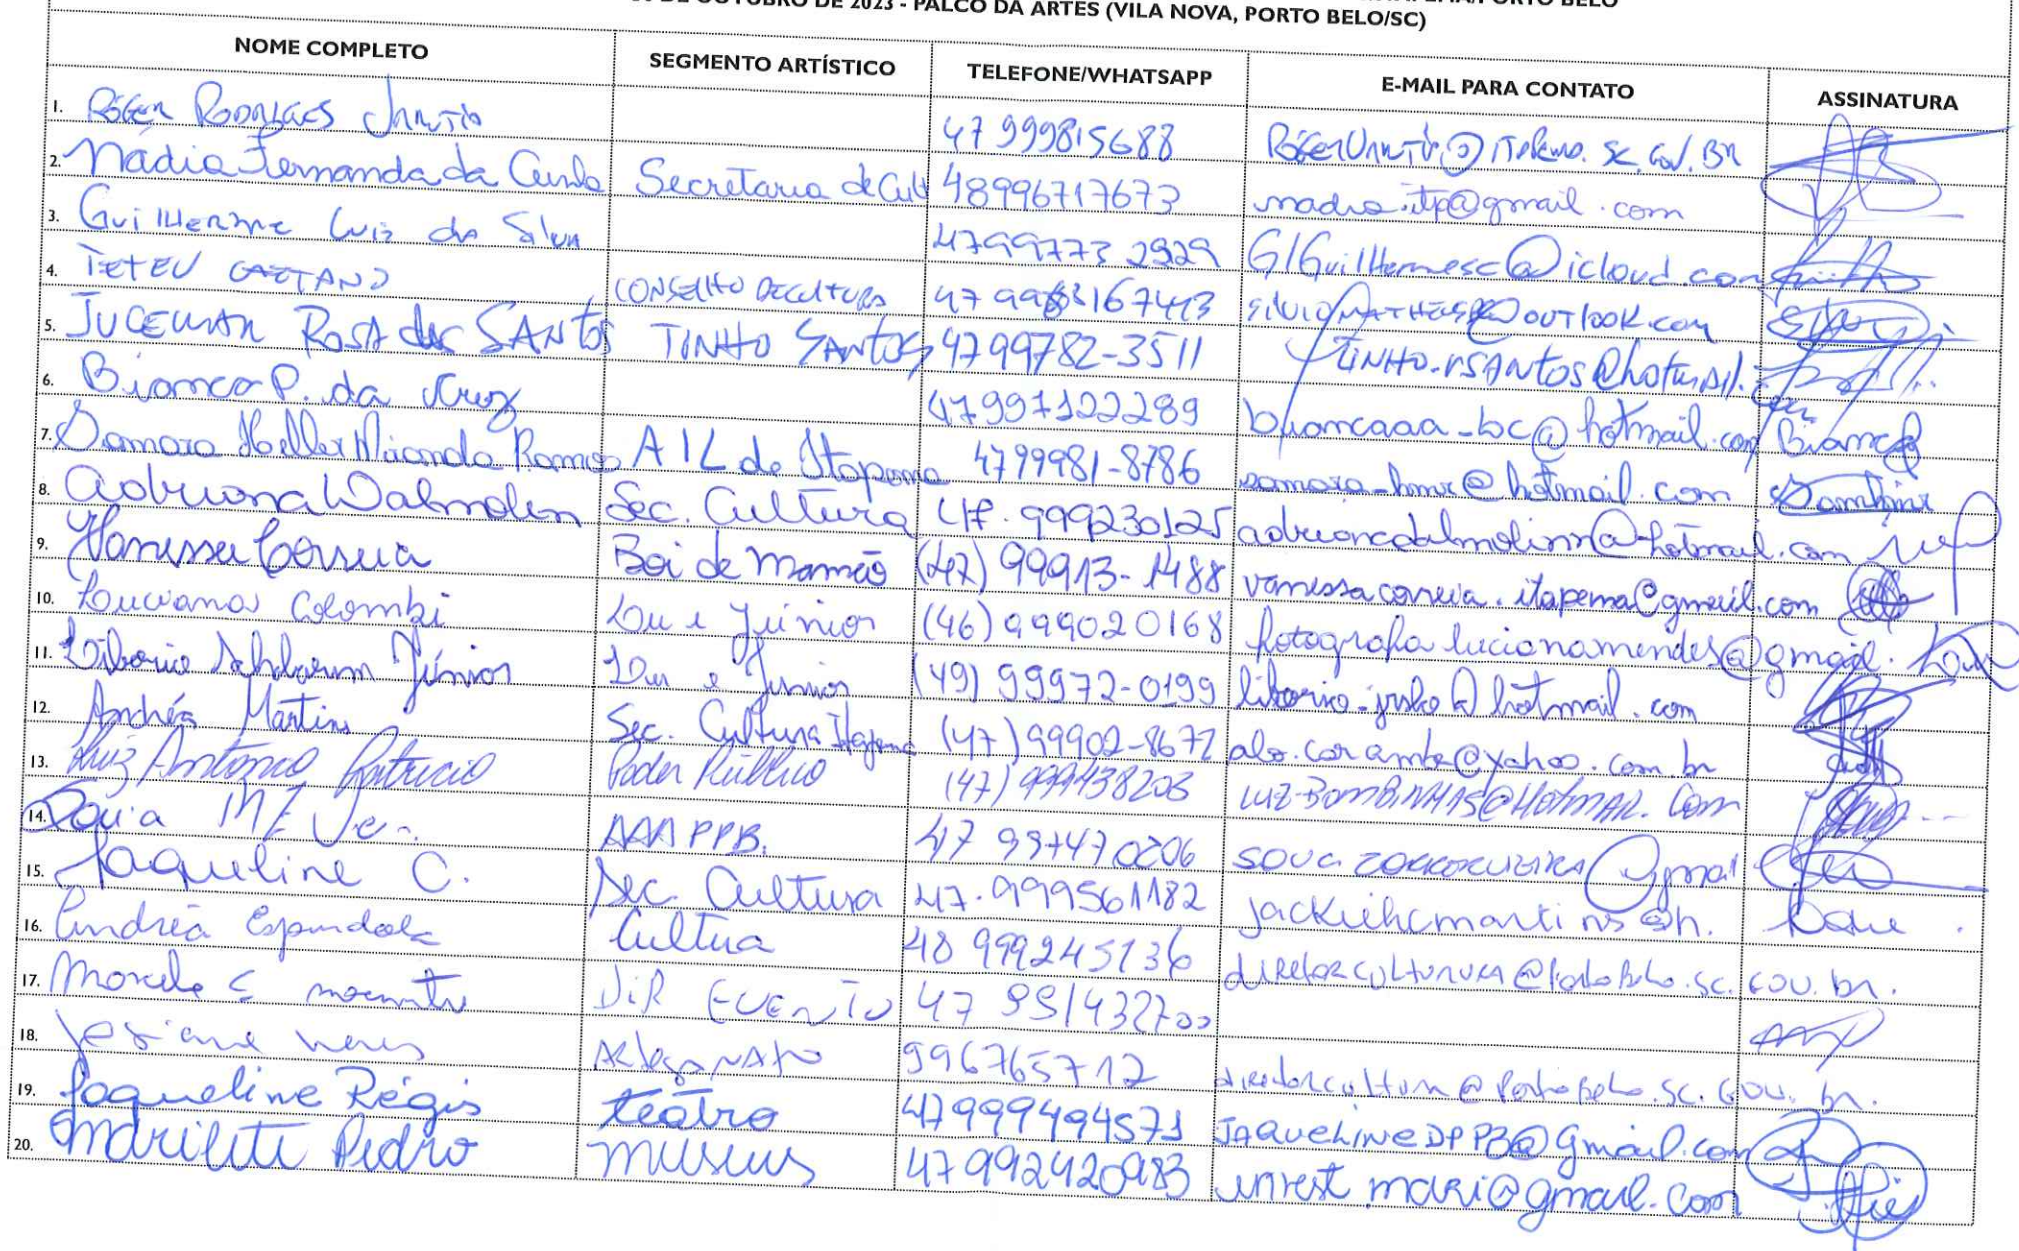 DE OUTUBRO DE 2023 - PALCO DA ARTES (VILA NOVA, PORTO BELO/SC)
NOME COMPLETO SEGMENTO ARTÍSTICO TELEFONE/WHATSAPP E-MAIL PARA CONTATO ASSINATURA
1. RÓGER RODRIGUES 47 999815688
2. Nadia Fernanda da Cunha Secretaria de Cult 48996717673 nadia.itp@gmail.com
3. Guilherme Luiz da Silva 4799773 2929 G/Guilhermesc@icloud.com
4. TETEU CAETANO CONSELHO DE CULTURA SILVIOMATHEUS@OUTLOOK.com
5. JUCEMAR ROSA dos SANTOS TINHO SANTOS 4799782-3511 TINHO.RSANTOS@hotmail.
6. Bianca P. da Cruz 47997122289 biancaaa_bc@hotmail.com Bianca
7. Samara Heller Miranda Ramos AIL de Itapema 4799981-8786 samara_hmr@hotmail.com
8. Adriana Dalmolin Sec. Cultura 47.999230125 adrianadalmolinn@hotmail.com
9. Vanessa Correia Boi de Mamão (47) 99913-1488 vanessacorreia.itapema@gmail.com
10. Luciana Colombi Lu e Júnior (46) 999020168 fotografalucianamendes@gmail.
11. Liborio Júnior Lu e Junior (49) 99972-0199 @hotmail.com
12. Andréa Martins Sec. Cultura Itapema (47) 99902-8672 alo.caramba@yahoo.com.br
13. Luiz Antonio Patricio Poder Público (47) 999438203 LUIZ-BOMBINHAS@HOTMAIL.Com
14. AAAPPB. 47 997470206 @gmail
15. Jaqueline C. Sec. Cultura 47.999561182 jackiehcmartins@h.
16. Andréa Espindola Cultura 48 999245136 diretorculturura@PortoBelo.sc.GOV.br.
17. DIR EVENTO 47 991432700
18. Josiane Neres Artesanato 996765712 diretorcultura@PortoBelo.SC.GOV.br.
19. Jaqueline Régis teatro 47999494571 JAQUELINEDPPB@gmail.com
20. Marileti Pedro museus 47992420983 invest.mari@gmail.com